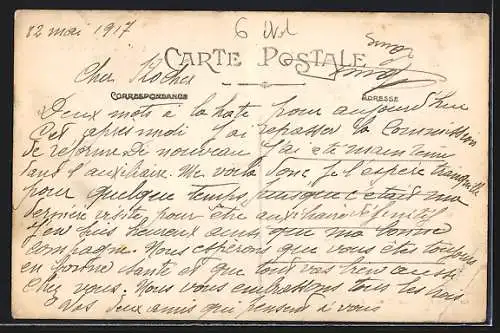 12 mai 1917
CARTE POSTALE
Cher Rocher
CORRESPONDANCE ADRESSE
Deux mots à la hate pour aujourd'hui
Cet apres midi j'ai repasser la Commission
de reforme. De nouveau j'ai été maintenu
dans l'auxiliaire. Me voila donc je l'espère tranquille
pour quelque temps puisque c'etait ma
dernière visite pour être auxiliaire définitif
J'en suis heureux ainsi que ma bonne
compagne. Nous esperons que vous êtes toujours
en bonne santé et que tout vas bien aussi
chez vous. Nous vous embrassons tous les trois
Vos deux amis qui pensent à vous